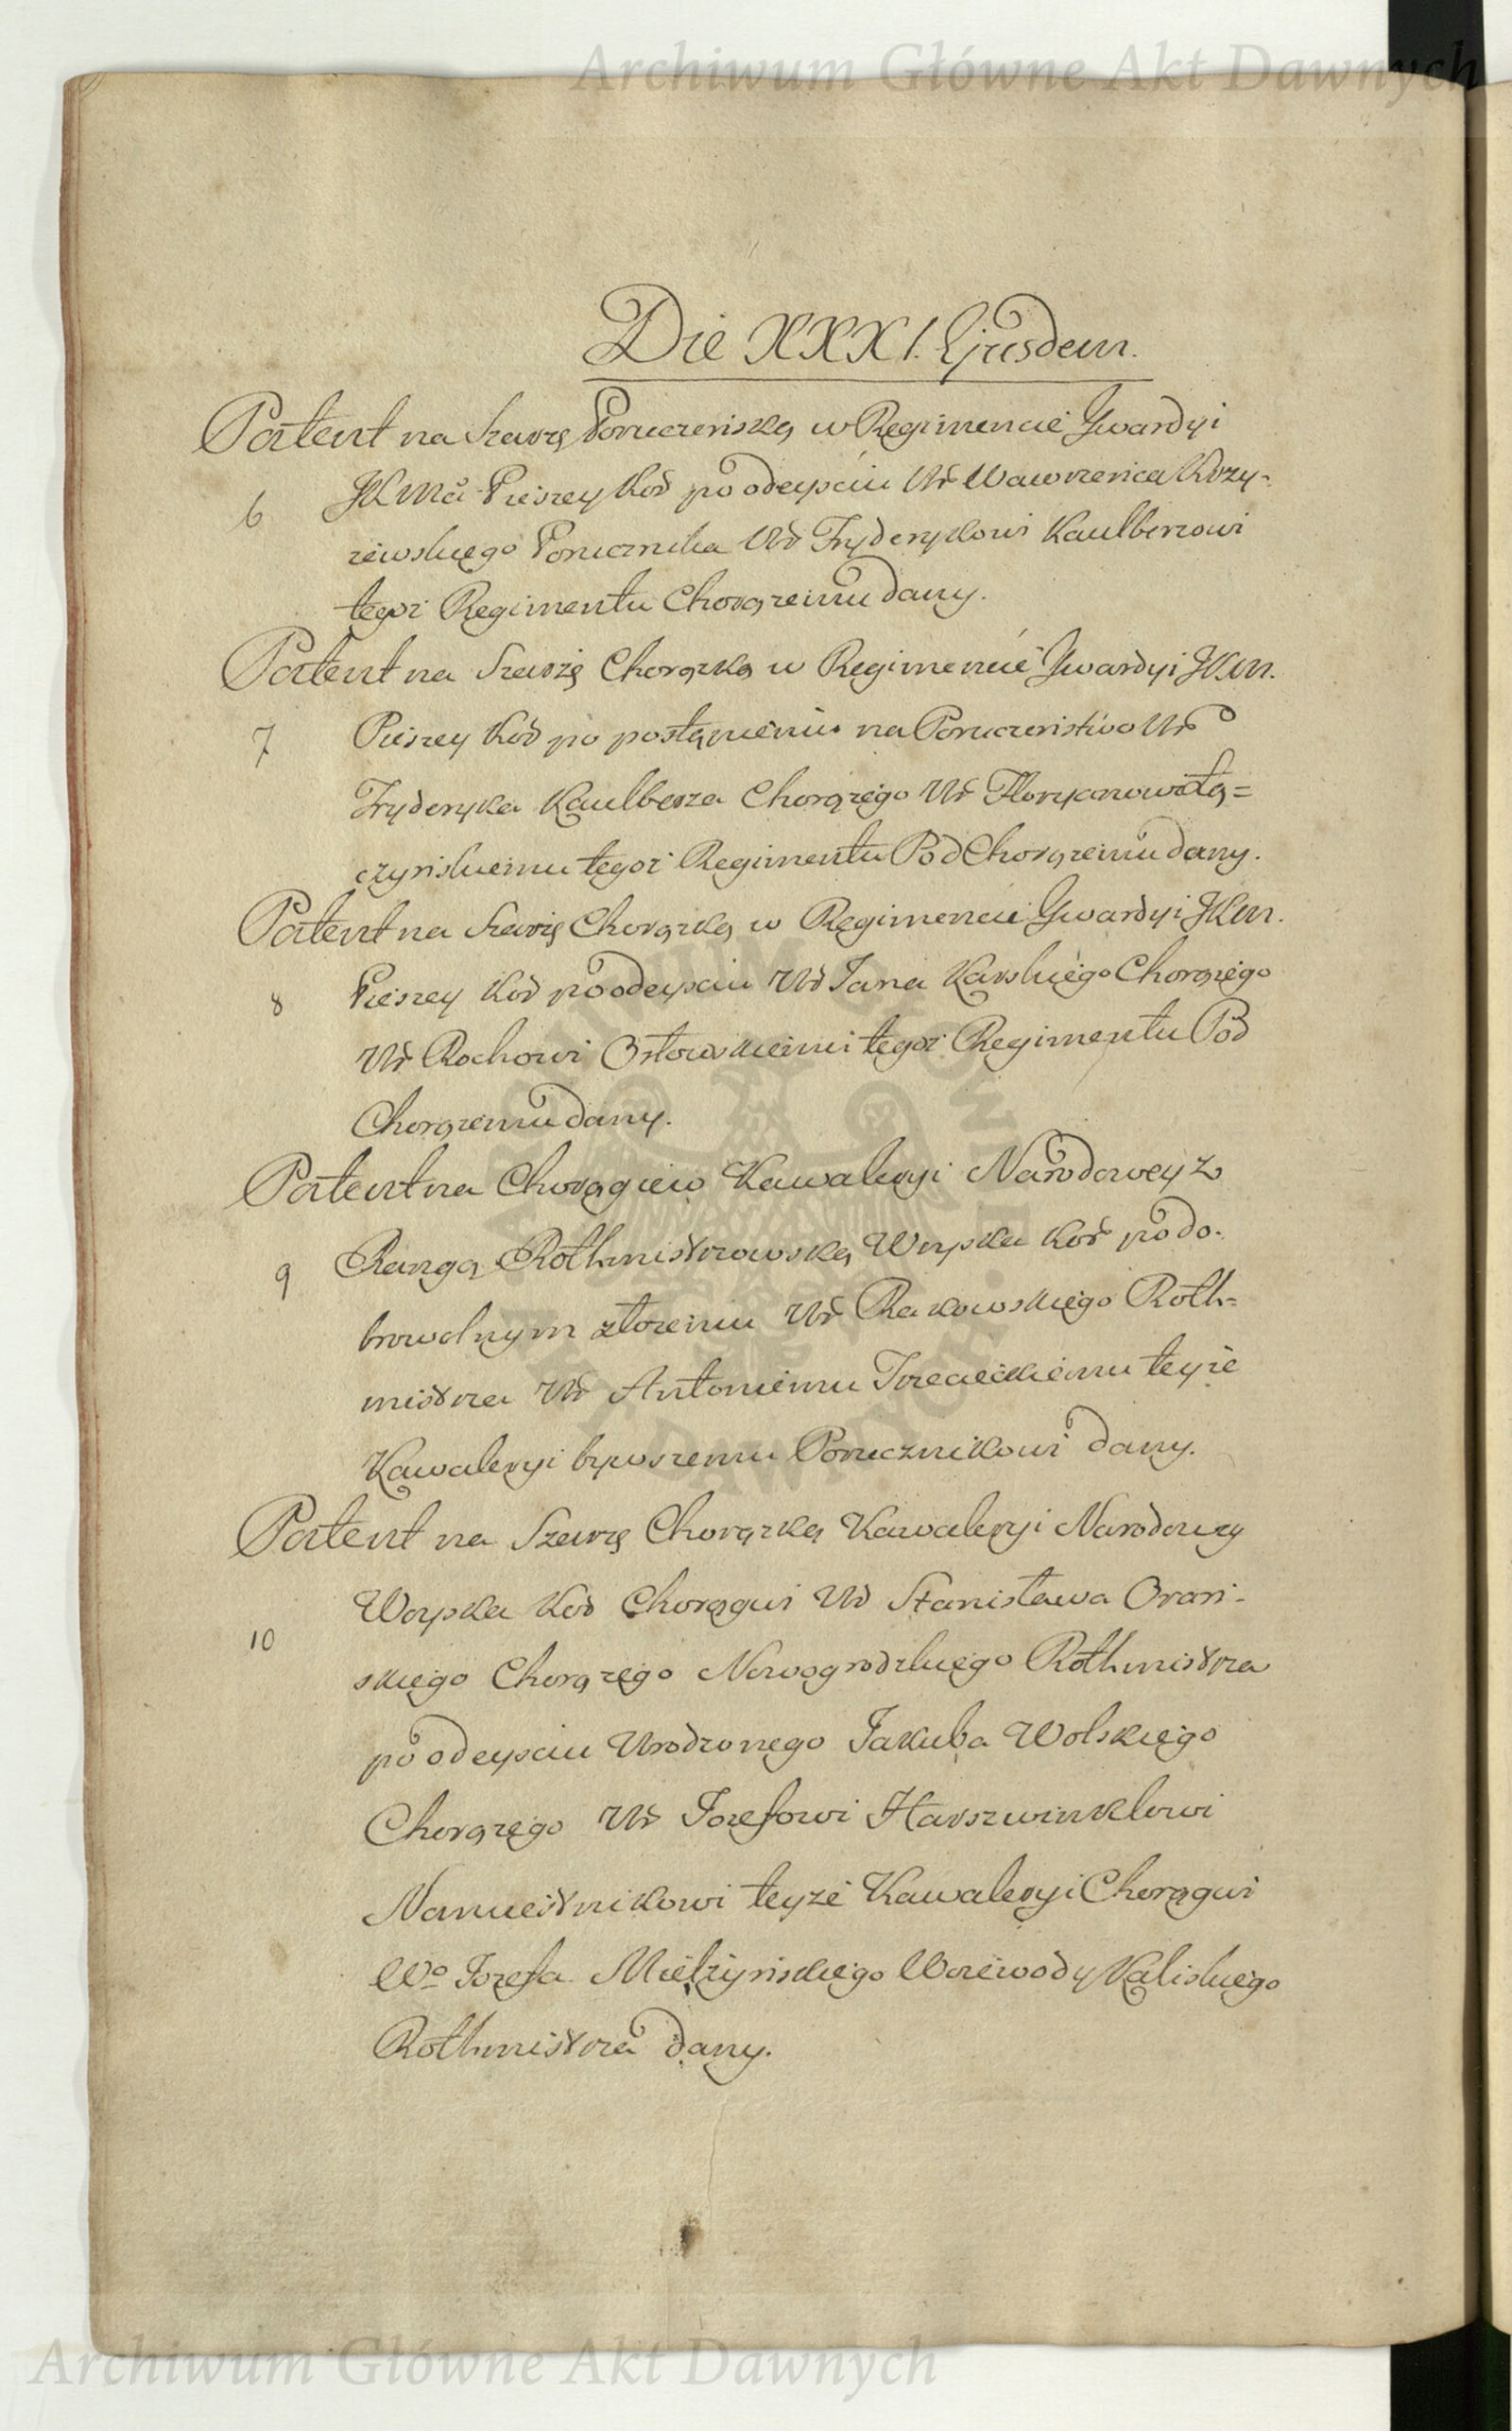 Archiwum Główne Akt Dawnych
Die XXXI. Ejusdem.
Patent na Szarżę Poruczeńską w Regimencie Gwardyi
6 JKMci Pieszey Kor po odeyściu Ur Wawrzeńca Krzy-
żewskiego Porucznika Ur Fryderykowi Kaulberzowi
tegoż Regimentu Chorążemu dany.
Patent na Szarżę Chorążką w Regimencie Gwardyi JKM.
7 Pieszey Kor po postąpieniu na Poruczeństwo Ur
Fryderyka Kaulbersza Chorążego Ur Floryanowi Łą=
czyńskiemu tegoż Regimentu PodChorążemu dany.
Patent na Szarżę Chorążką w Regimencie Gwardyi JKM.
8 Pieszey Kor po odeyściu Ur Jana Karskiego Chorążego
Ur Rochowi Osłowskiemu tegoż Regimentu Pod
Chorążemu dany.
Patent na Chorągiew Kawaleryi Narodowey z
9 Rangą Rothmistrzowską Woyska Kor po do-
browolnym złożeniu Ur Rakowskiego Roth=
mistrza Ur Antoniemu Trzecieckiemu teyże
Kawaleryi bywszemu Porucznikowi dany.
Patent na Szarżę Chorążką Kawaleryi Narodowey
Woyska Kor Chorągwi Ur Stanisława Orań-
10 skiego Chorążego Nowogrodzkiego Rothmistrza
po odeyściu Urodzonego Jakuba Wolskiego
Chorążego Ur Jozefowi Harszwinklowi
Namiestnikowi teyże Kawaleryi Chorągwi
Wo Jozefa Mielżyńskiego Woiewody Kaliskiego
Rothmistrza dany.
Archiwum Główne Akt Dawnych